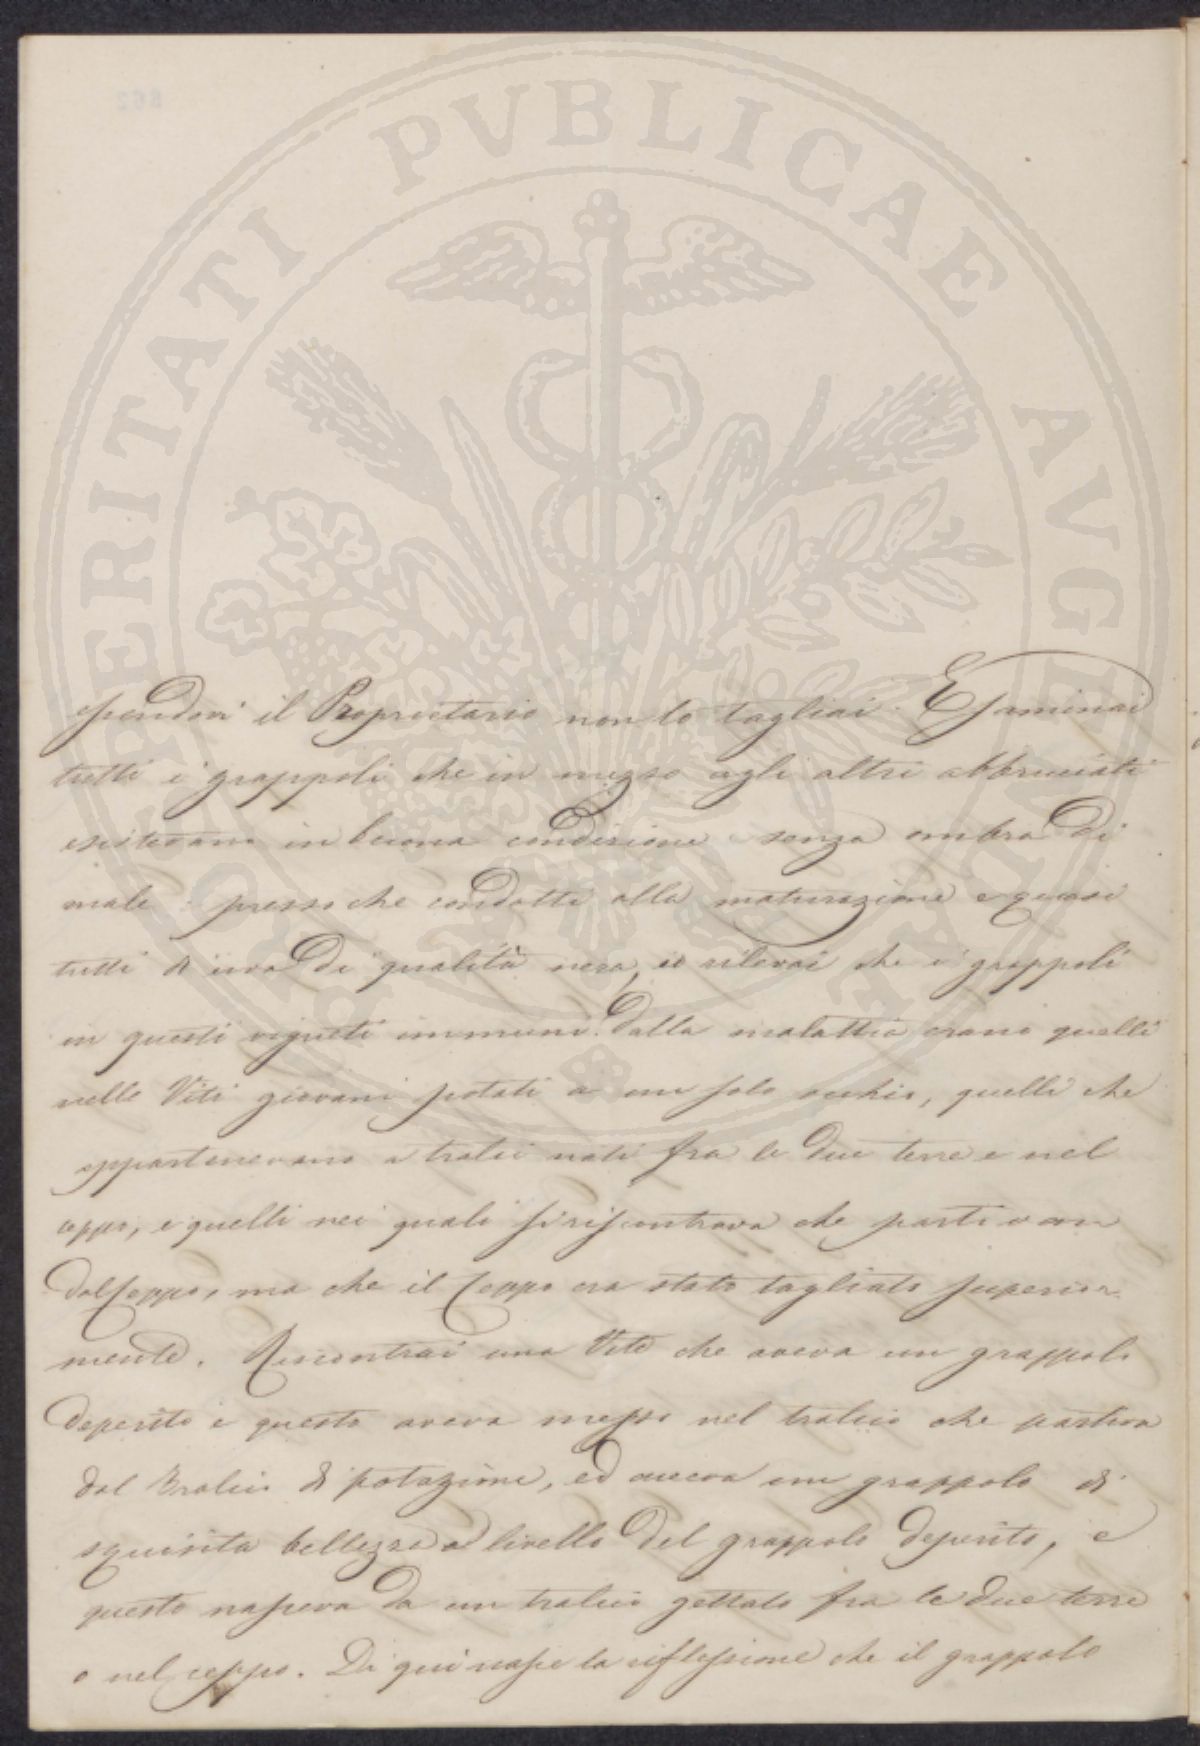 PROSPERITATI PVBLICAE AVGENDAE
essendovi il Proprietario non lo tagliai. Esaminai
tutti i grappoli che in mezzo agli altri abbruciati
esistevano in buona condizione senza ombra di
male: pressoche condotti alla maturazione e quasi
tutti di uva di qualità nera, io rilevai che i grappoli
in questi vigneti immuni dalla malattia erano quelli
nelle Viti giovani potati a un solo occhio, quelli che
appartenevano a tralci nati fra le due terre e nel
ceppo, e quelli nei quali si riscontrava che partivan
dal Ceppo, ma che il Ceppo era stato tagliato superior-
mente. Riscontrai una Vite che aveva un grappolo
deperito e questo aveva messo nel tralcio che partiva
dal Tralcio di potazione, ed aveva un grappolo di
squisita bellezza a livello del grappolo deperito, e
questo nasceva da un tralcio gettato fra le due terre
o nel ceppo. Di qui nasce la riflessione che il grappolo